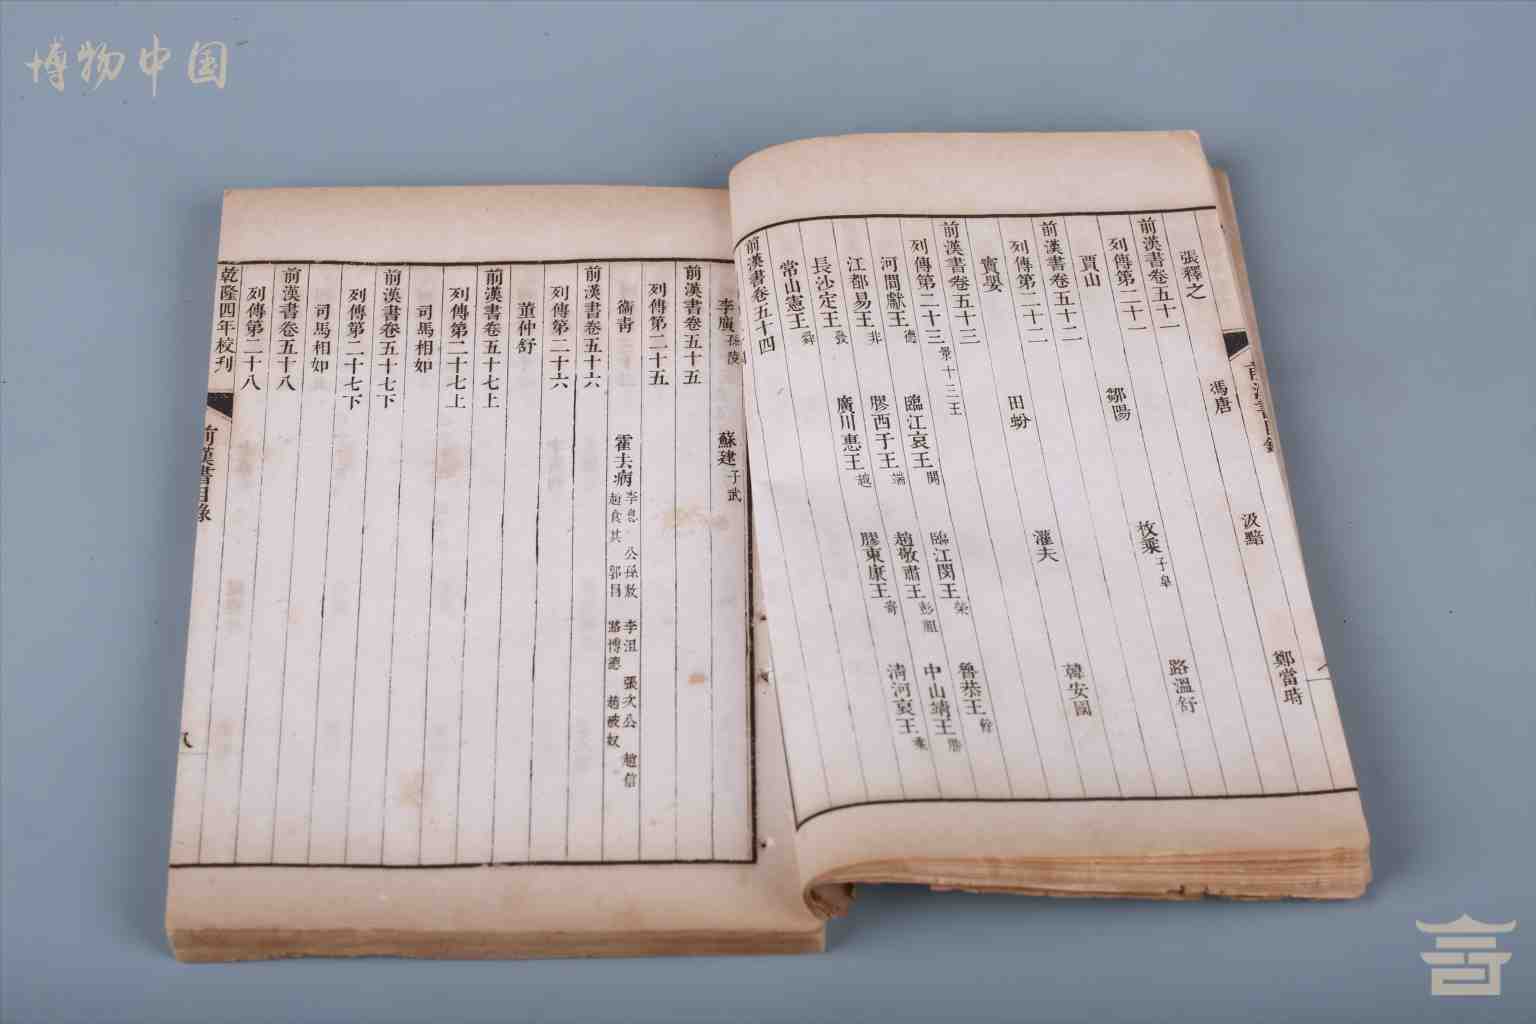 博物中国
前漢書目錄
張釋之 馮唐 汲黯 鄭當時
前漢書卷五十一
列傳第二十一
賈山 鄒陽 枚乘 子皋 路溫舒
前漢書卷五十二
列傳第二十二
竇嬰 田蚡 灌夫 韓安國
前漢書卷五十三
列傳第二十三 景十三王
河間獻王 德 臨江哀王 閼 臨江閔王 榮 魯恭王 餘
江都易王 非 膠西于王 端 趙敬肅王 彭祖 中山靖王 勝
長沙定王 發 廣川惠王 越 膠東康王 寄 清河哀王 乘
常山憲王 舜
前漢書卷五十四
李廣 孫陵 蘇建 子武
前漢書卷五十五
列傳第二十五
衞青 霍去病 李息 公孫敖 李沮 張次公 趙信
趙食其 郭昌 路博德 趙破奴
前漢書卷五十六
列傳第二十六
董仲舒
前漢書卷五十七上
列傳第二十七上
司馬相如
前漢書卷五十七下
列傳第二十七下
司馬相如
前漢書卷五十八
列傳第二十八
乾隆四年校刋
前漢書目錄
八